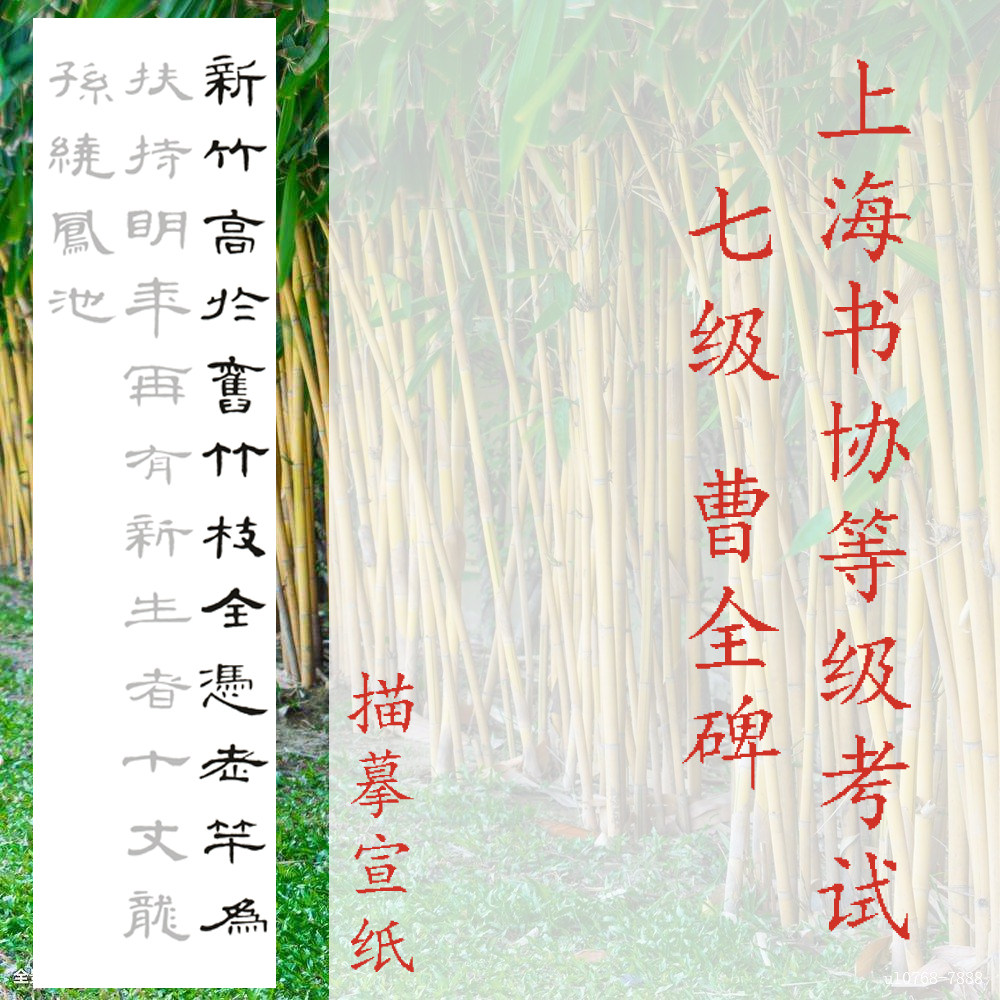 上海书协等级考试
七级 曹全碑
描摹宣纸
新竹高於舊竹枝全憑老竿為
扶持明年再有新生者十丈龍
孫繞鳳池
全